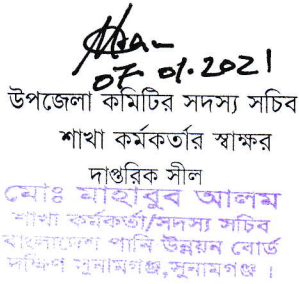 07.01.2021
উপজেলা কমিটির সদস্য সচিব
শাখা কর্মকর্তার স্বাক্ষর
দাপ্তরিক সীল
মোঃ মাহাবুব আলম
শাখা কর্মকর্তা/সদস্য সচিব
বাংলাদেশ পানি উন্নয়ন বোর্ড
দক্ষিণ সুনামগঞ্জ,সুনামগঞ্জ ।